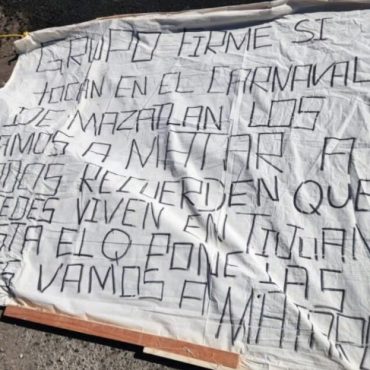 GRUPO FIRME SI
TOCAN EN EL CARNAVAL
DE MAZATLAN LOS
VAMOS A MATAR A
RECUERDEN QUE
VIVEN EN TIJUAN
EL Q PONE LAS
VAMOS A